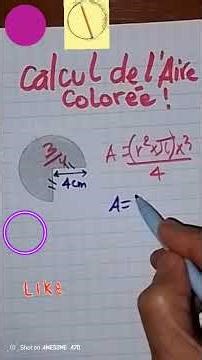 Calcul de l'Aire
Colorée !
3/4
4cm
A = (r²xπ)x3
4
A=
LIKE
Shot on AWESOME A70